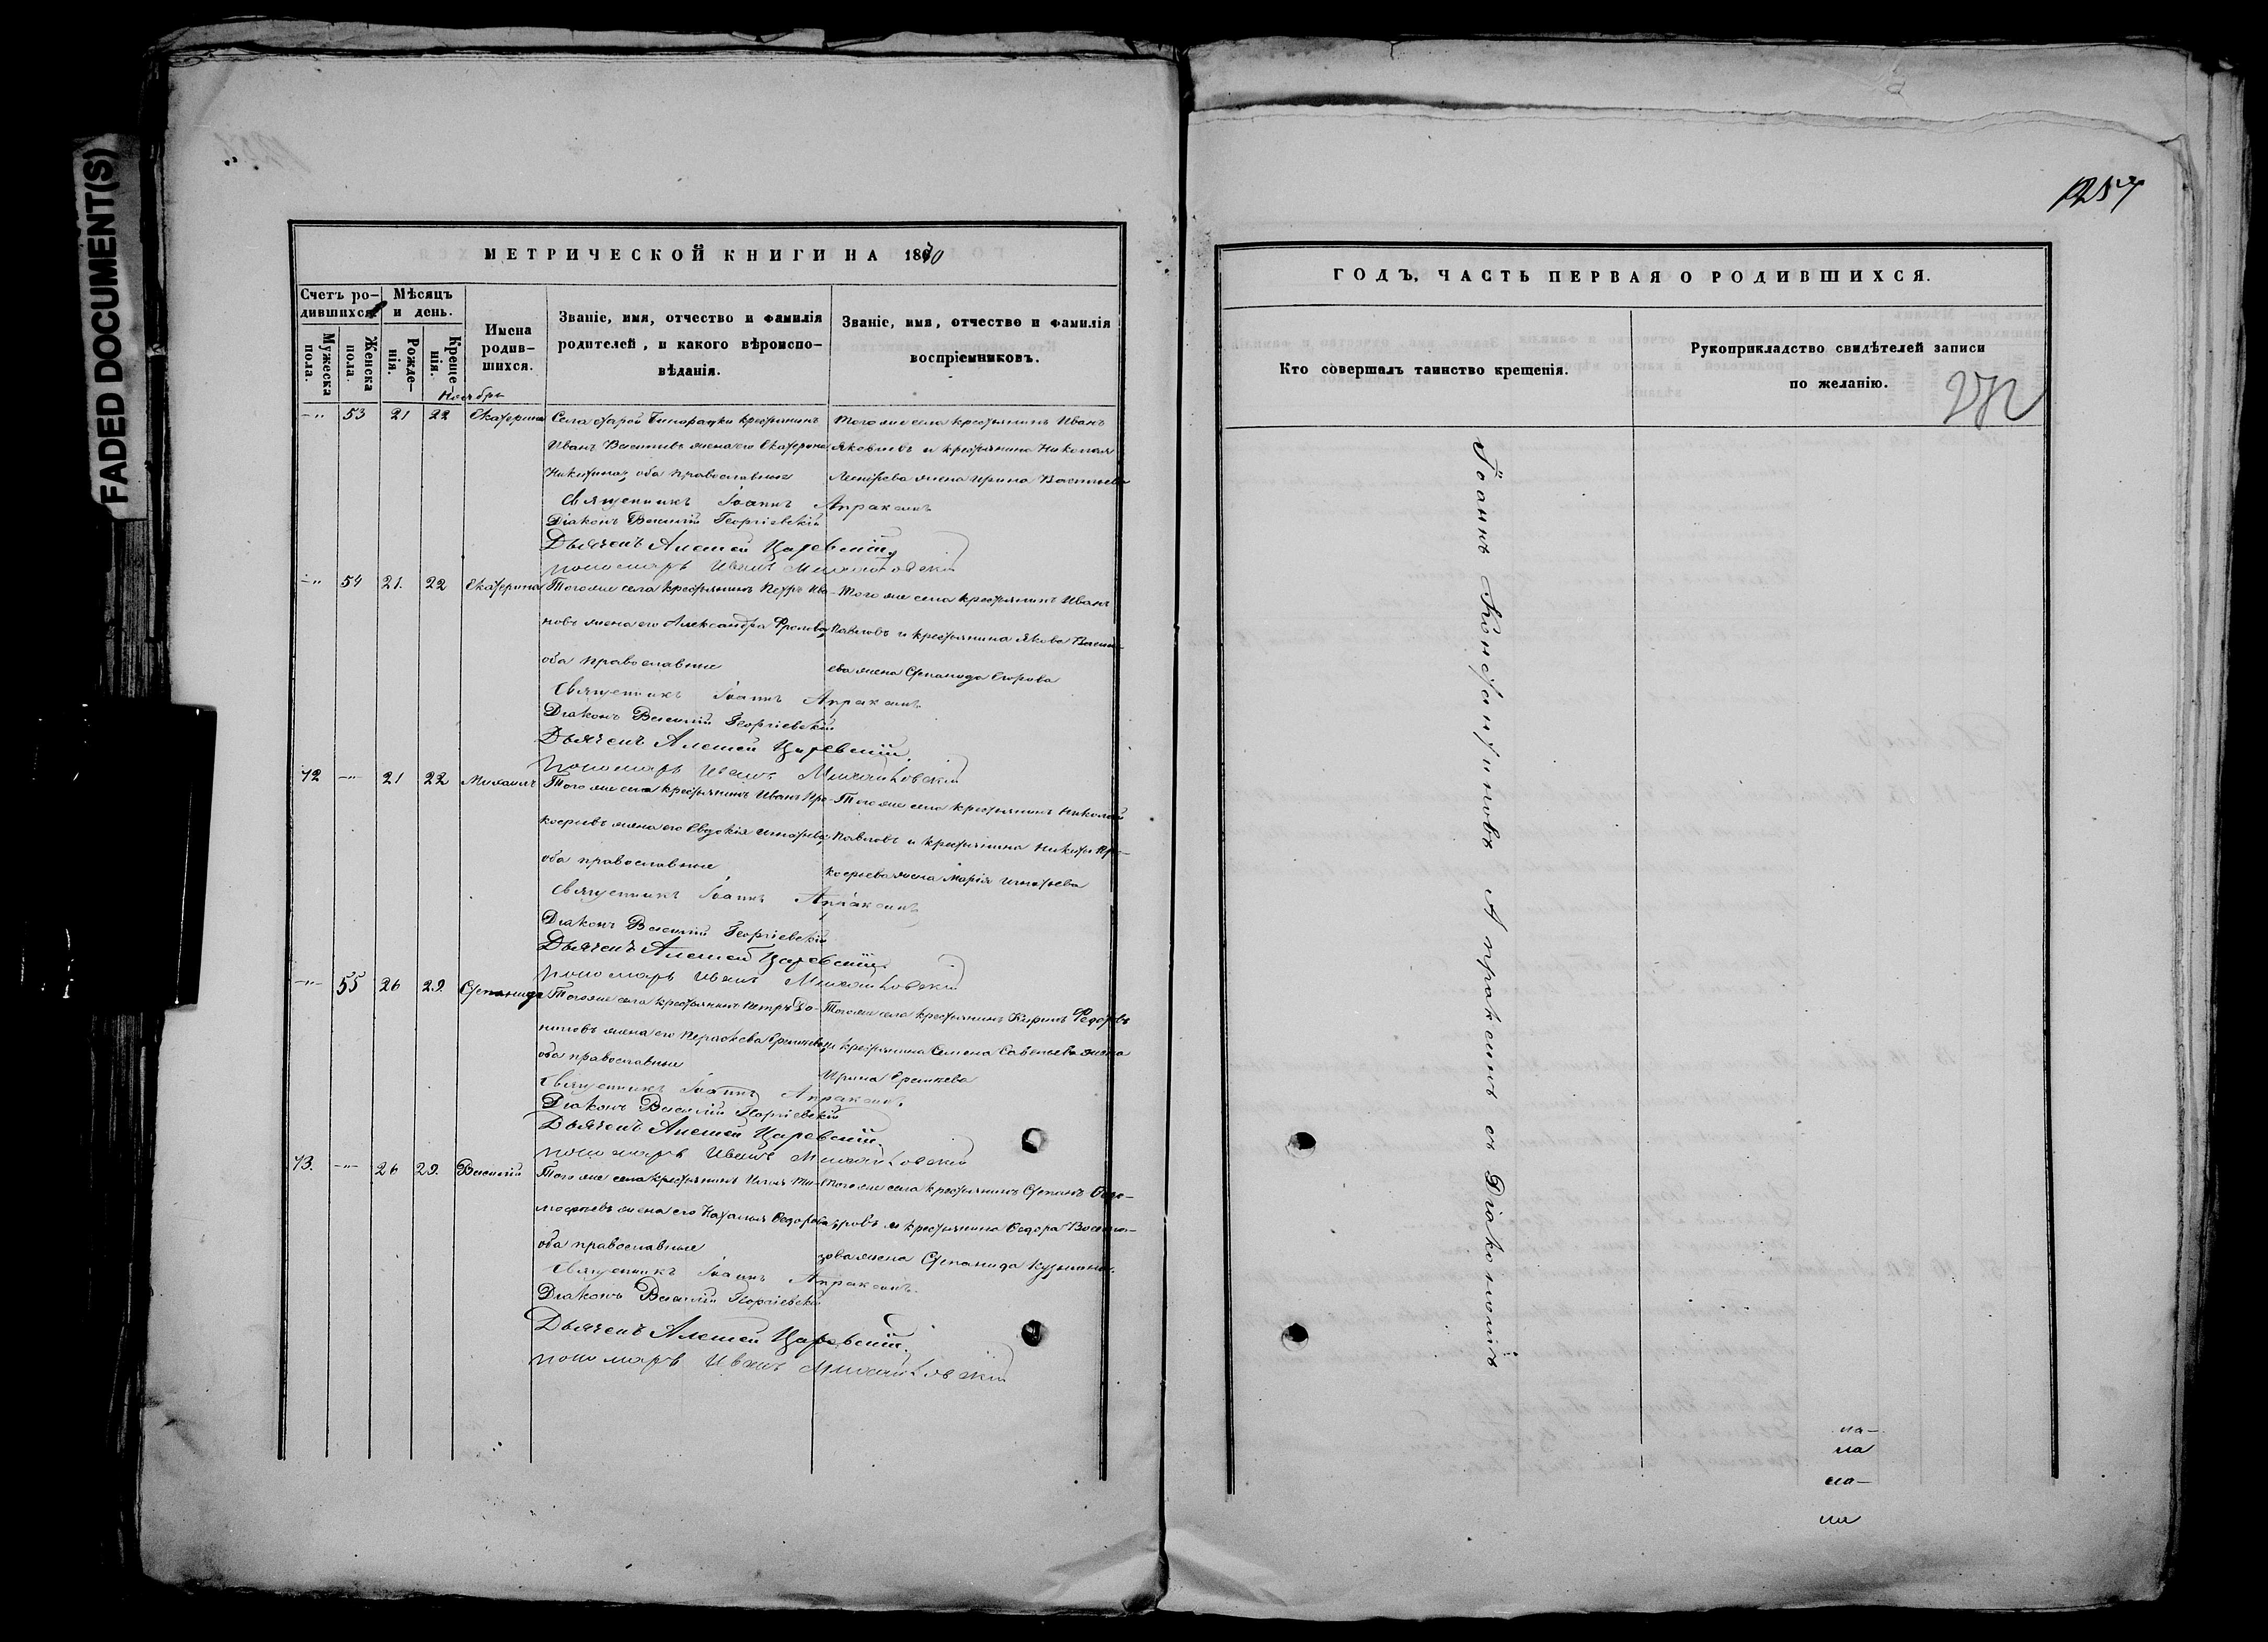 FADED DOCUMENT(S)
МЕТРИЧЕСКОЙ КНИГИ НА 1870
Счетъ ро-
дившихся.
Мѣсяцъ
и день.
Мужеска
пола.
Женска
пола.
Рожде-
нія.
Креще-
нія.
Имена
родив-
шихся.
Званіе, имя, отчество и фамилія
родителей, и какого вѣроиспо-
вѣданія.
Званіе, имя, отчество и фамилія
воспріемниковъ.
Ноябрь
-"- 53 21 22 Екатерина
Села Старой Бинарадки крестьянинъ
Иванъ Васильевъ жена его Екатерина
Никитина, оба православные
Того же села крестьянинъ Иванъ
Яковлевъ и крестьянина Николая
жена Ирина Васильева
Священникъ Іоаннъ Апраксинъ
Діаконъ Василій Георгіевскій
Дьячекъ Алексей Царевскій
Пономарь Иванъ
-"- 54 21. 22 Екатерина
Того же села крестьянинъ Петръ Ива-
новъ жена его Александра Фролова,
оба православные
Того же села крестьянинъ Иванъ
Павловъ и крестьянина Якова Василь-
ева жена Степанида Егорова
Священникъ Іоаннъ Апраксинъ
Діаконъ Василій Георгіевскій
Дьячекъ Алексей Царевскій.
Пономарь Иванъ
72 -"- 21 22 Михаилъ
Того же села крестьянинъ Иванъ Про-
кофьевъ жена его Евдокія Игнатьева,
оба православные
Того же села крестьянинъ Николай
Павловъ и крестьянина Никиты Про-
кофьева жена Марія Игнатьева
Священникъ Іоаннъ Апраксинъ
Діаконъ Василій Георгіевскій
Дьячекъ Алексей Царевскій.
Пономарь Иванъ
-"- 55 26 29. Степанида
Того же села крестьянинъ Петръ До-
ниловъ жена его
оба православные
Того же села крестьянинъ Кирилъ Федоровъ
и крестьянина Семена Савельева жена
Ирина
Священникъ Іоаннъ Апраксинъ.
Діаконъ Василій Георгіевскій
Дьячекъ Алексей Царевскій.
Пономарь Иванъ
73. -"- 26 29. Василій
Того же села крестьянинъ Илья Ти-
мофеевъ жена его Наталья Федорова
оба православные
Того же села крестьянинъ Степанъ Федо-
ровъ и крестьянина Федора
жена Степанида Кузьмина.
Священникъ Іоаннъ Апраксинъ.
Діаконъ Василій Георгіевскій
Дьячекъ Алексей Царевскій.
Пономарь Иванъ
1257
ГОДЪ, ЧАСТЬ ПЕРВАЯ О РОДИВШИХСЯ.
Кто совершалъ таинство крещенія.
Рукоприкладство свидѣтелей записи
по желанію.
Іоаннъ Константиновъ Апраксинъ съ Діакономъ
на-
на
на-
на